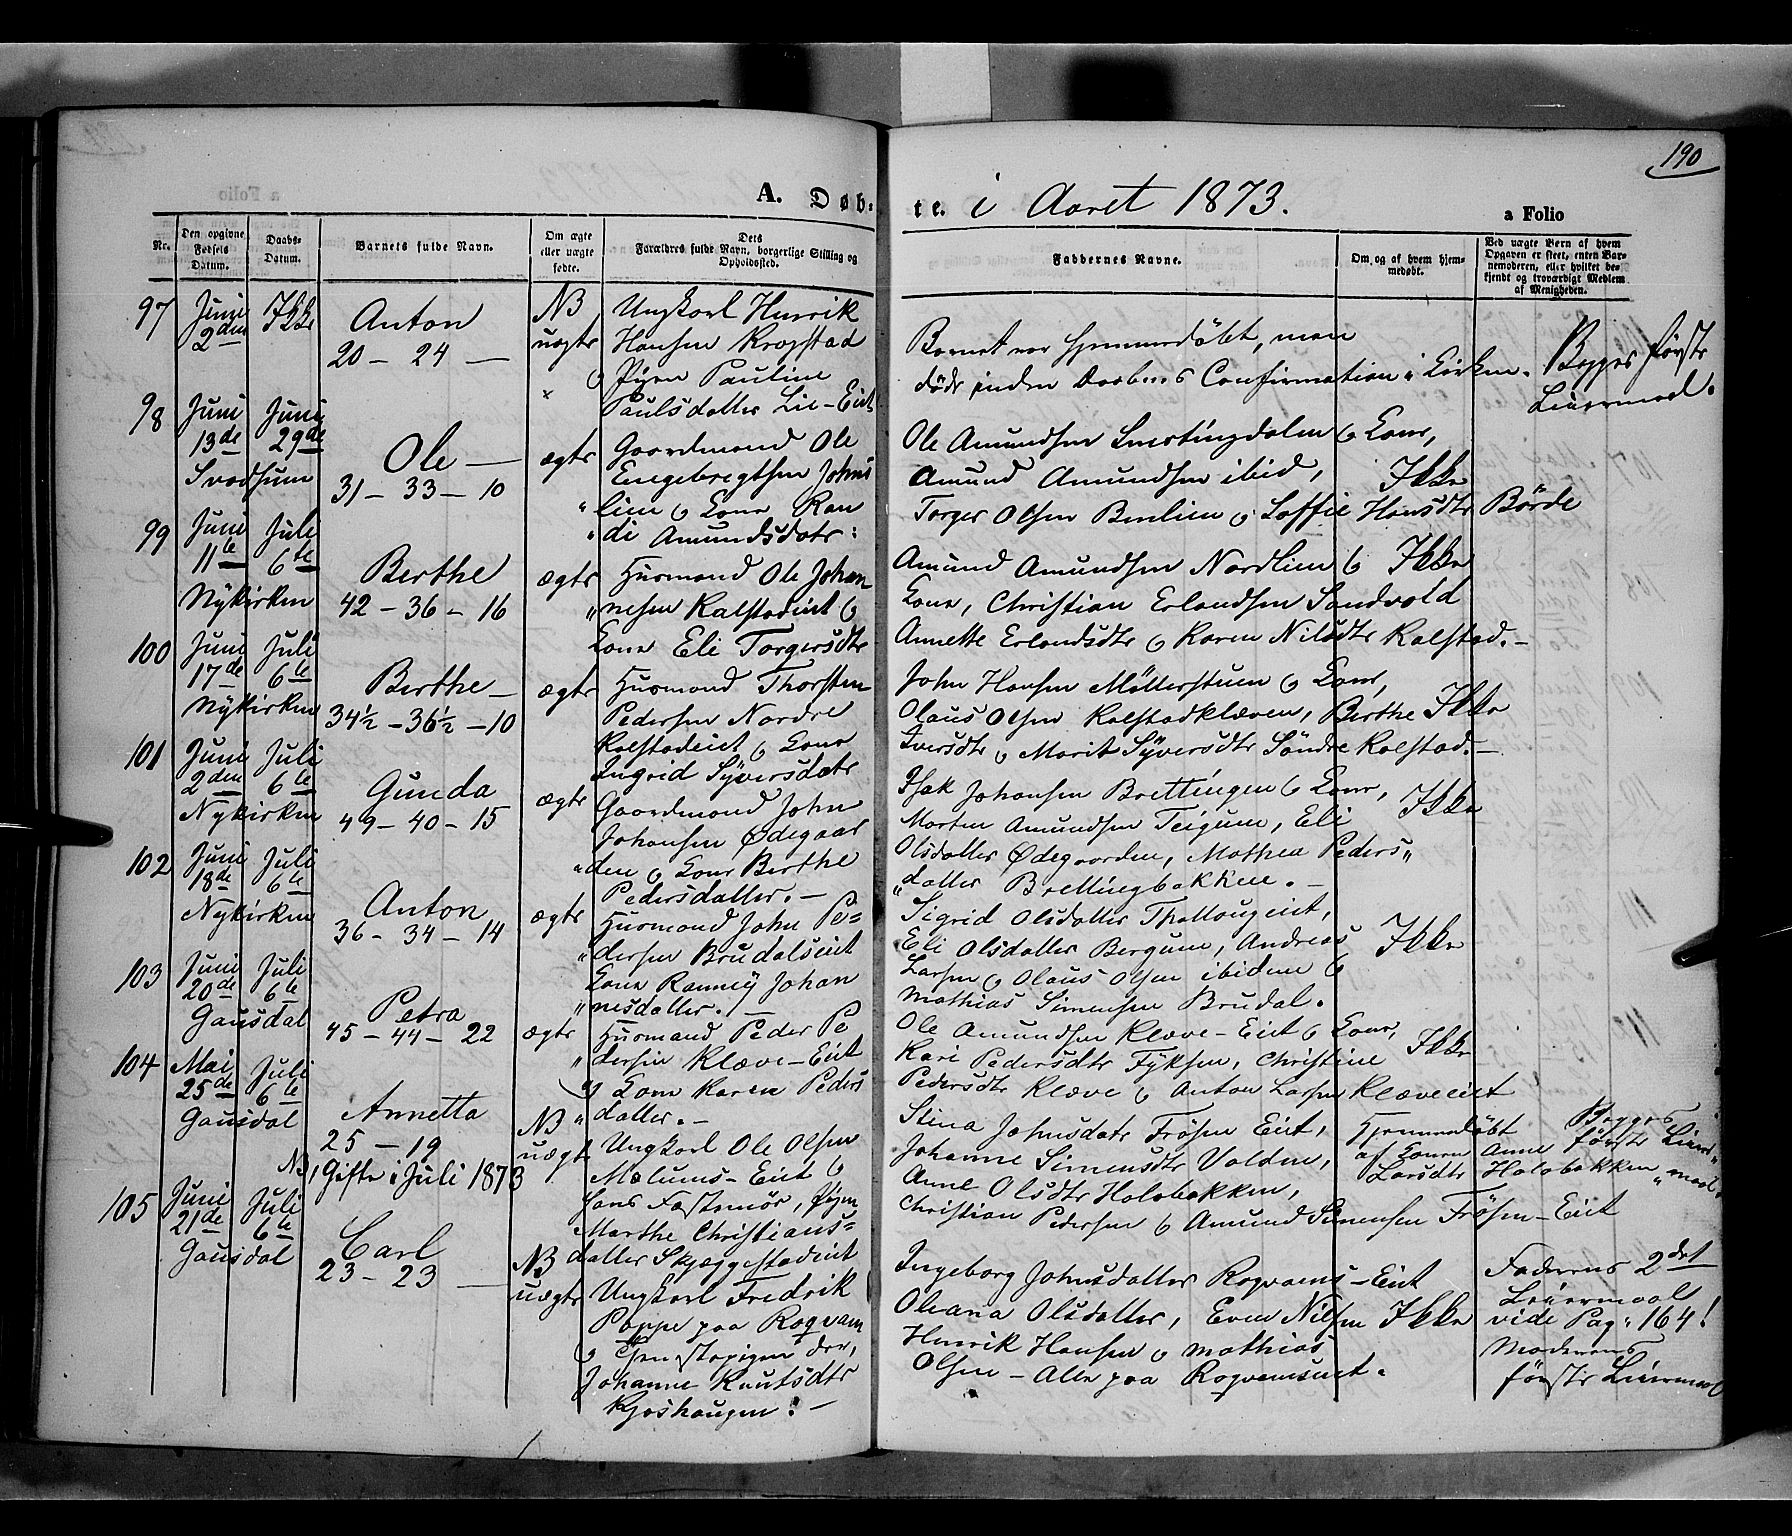 190
A. Døb=
te. i Aaret 1873.
a Folio
Nr.
Den opgivne Fødsels Datum.
Daabs-Datum.
Barnets fulde Navn.
Om ægte eller uægte fødte.
Dets Forældres fulde Navn, borgerlige Stilling og Opholdssted.
Faddernes Navne.
Om og af hvem hjemmedøbt.
Ved uægte Børn af hvem Opgaven er skeet, enten Barnemoderen, eller hvilket bekjendt og troværdigt Medlem af Menigheden.
97
Juni 2den
Ikke
Anton
20 - 24 -
NB
uægte
Ungkarl Henrik
Hansen Krogstad
og Pigen Pauline
Paulsdatter Lie-Eiet
Barnet var hjemmedøbt, men
døde inden Daabens Confirmation i Kirken.
Begges første
Leiermaal.
98
Juni 13de
Juni 29de
Svadsum
Ole -
31 - 33 - 10
ægte
Gaardmand Ole
Engebregtsen Johns
"lien og Kone Ran
"di Amundsdatr:
Ole Amundsen Smestingdalen og Kone,
Amund Amundsen ibid,
Torger Olsen Benlien og Soffie Hansdtr Börde
Ikke
99
Juni 11te
Juli 6te
Nykirken
Berthe
42 - 36 - 16
ægte
Husmand Ole Johan
"nesen Kalstadeiet og
Kone Eli Torgersdtr
Amund Amundsen Nordlien og
Kone, Christian Erlandsen Sandvold
Annette Erlandsdtr og Karen Nilsdtr Kalstad. -
Ikke
100
Juni 17de
Juli 6te
Nykirken
Berthe -
34½ - 36½ - 10
ægte
Husmand Thorsten
Pedersen Nordre
Kalstadeiet og Kone
Ingrid Syversdatr
John Hansen Möllerstuen og Kone,
Olaus Olsen Kalstadkleven, Berthe
Iversdtr og Marit Syversdtr Søndre Kalstad. -
Ikke
101
Juni 2den
Juli 6te
Nykirken
Gunda
49 - 40 - 15
ægte
Gaardmand John
Johansen Ødegaar
"den og Kone Berthe
Pedersdatter. -
Isak Johansen Brettingen og Kone,
Morten Amundsen Teigum, Eli
Olsdatter Ødegaarden, Mathea Peders"
"datter Brettingbakken. -
Ikke
102
Juni 18de
Juli 6te
Nykirken
Anton
36 - 34 - 14
ægte
Husmand John Pe=
"dersen Brudalseiet
Kone Ranney Johan
"nesdatter. -
Sigrid Olsdatter Thallaugeiet,
Eli Olsdatter Bergum, Andreas
Larsen og Olaus Olsen ibidem og
Mathias Simensen Brudal.
Ikke
103
Juni 20de
Juli 6te
Gausdal
Petra
45 - 44 - 22
ægte
Husmand Peder Pe
"dersen Klæve-Eiet
og Kone Karen Peders
"datter. -
Ole Amundsen Klæve-Eiet og Kone,
Kari Pedersdtr Fyksen, Christine
Pedersdtr Klæve og Anton Larsen Klæveeiet
Ikke
104
Mai 25de
Juli 6te
Gausdal
Annetta
25 - 19
NB, Gifte i Juli 1873
NB
uægte
Ungkarl Ole Olsen
Mælums-Eiet og
hans Fæstemø, Pigen
Marthe Christians=
datter Skjæggestadeiet
Stina Johnsdatr Frösen Eiet,
Johanne Simensdtr Volden,
Anne Olsdtr Holobakken,
Christian Pedersen og Amund Simensen Frösen-Eiet
Hjemmedøbt
af Konen Anne
Larsdtr Holobakken
Begges
første Leier"
"maal.
105
Juni 21de
Juli 6te
Gausdal
Carl
23 - 23 -
NB
uægte
Ungkarl Fredrik
Poppe paa Rogvam
og Tjenestepigen der,
Johanne Knutsdtr
Kjoshaugen. -
Ingeborg Johnsdatter Rogvams-Eiet
Oleana Olsdatter, Even Nilsen
Henrik Hansen og Mathias
Olsen - Alle paa Rogvamseiet.
Ikke
Faderens 2det
Leiermaal
vide Pag. 164!
Moderens
første Leiermaal